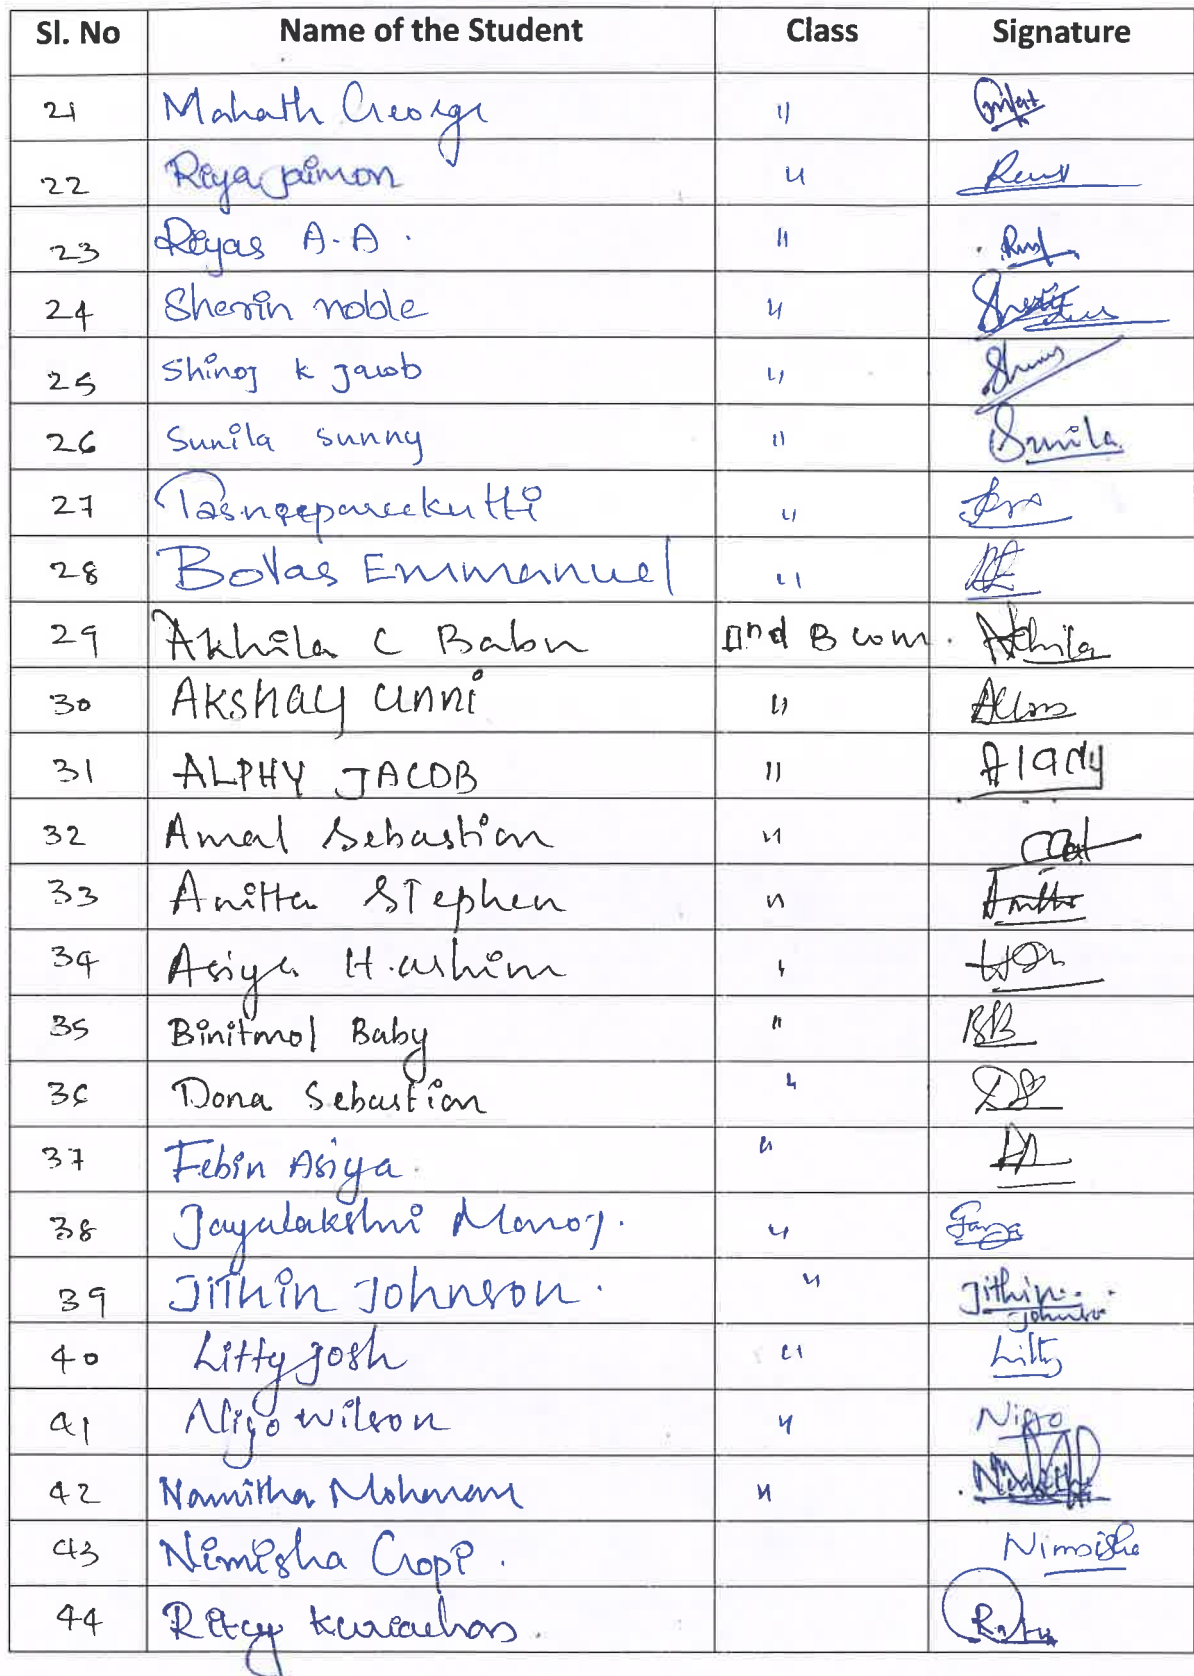 Sl. No Name of the Student Class Signature
21 Mahath George "
22 Riya jaimon "
23 Riyas A.A. "
24 Sherin noble "
25 Shinoj k jacob "
26 Sunila sunny " Sunila
27 "
28 Bovas Emmanuel "
29 Akhila C Babu IInd B com. Akhila
30 Akshay unni "
31 ALPHY JACOB "
32 Amal Sebastian "
33 Anitta Stephen " Anitta
34 Asiya Hashim "
35 Binitmol Baby " BB
36 Dona Sebastian " DS
37 Febin Asiya. "
38 Jayalakshmi Manoj. "
39 Jithin Johnson. " Jithin Johnson
40 Litty josh " Litty
41 Nijo wilson " Nijo
42 Namitha Mohanan "
43 Nimisha Gopi. Nimisha
44 Ritty kuriachos.